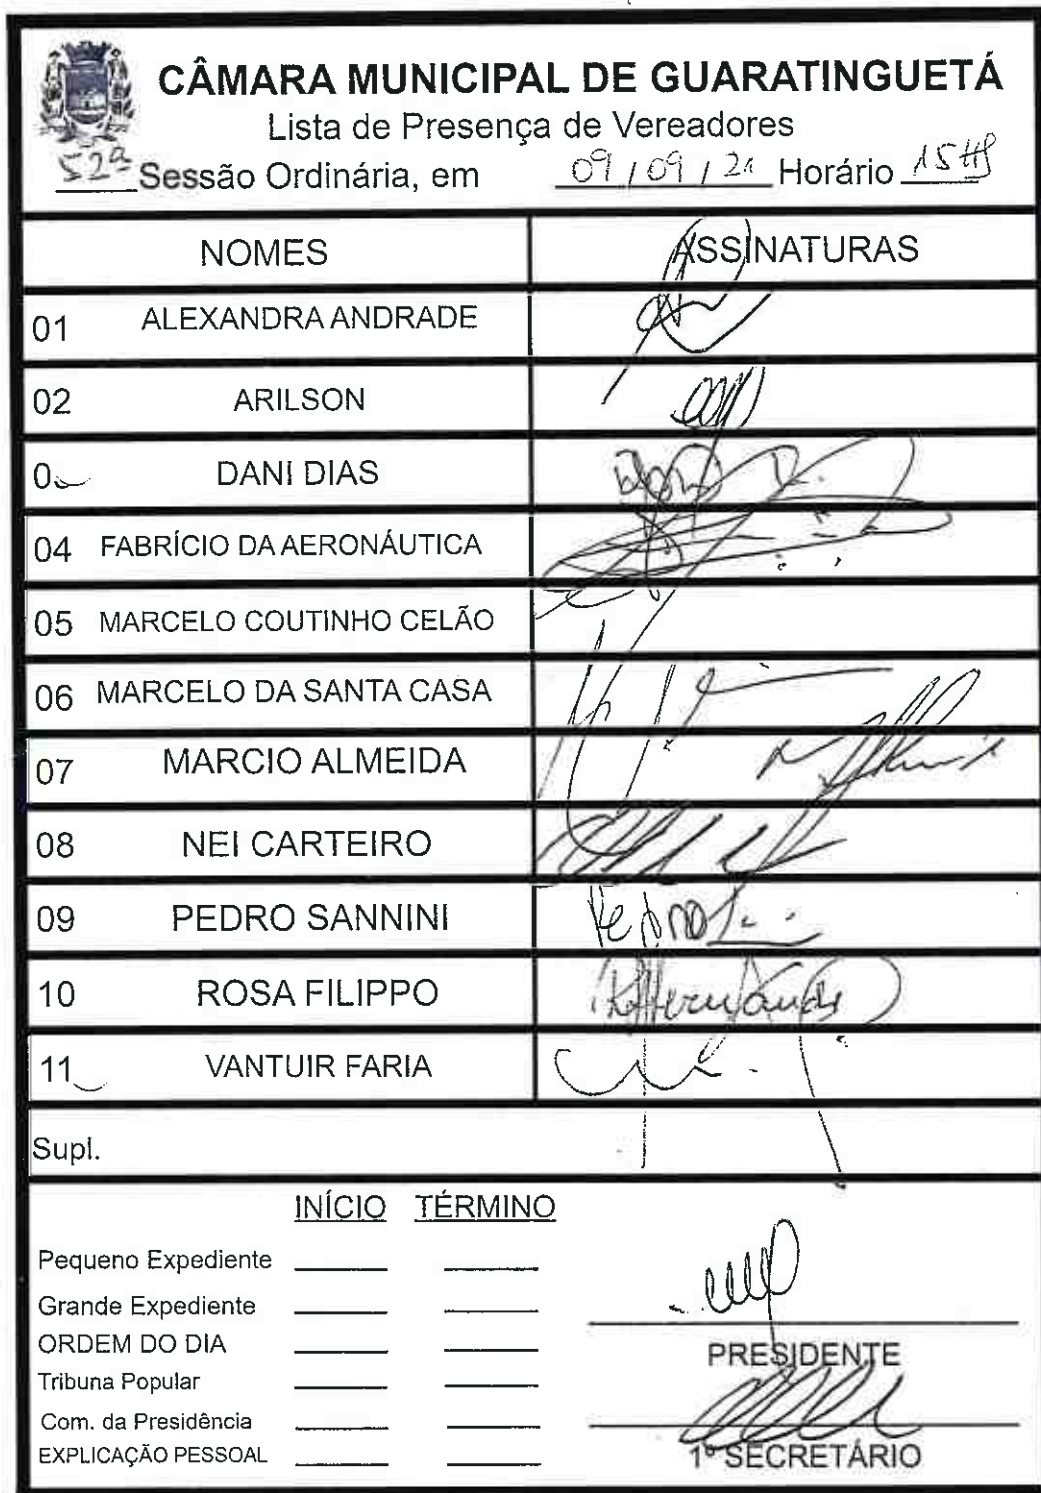 CÂMARA MUNICIPAL DE GUARATINGUETÁ
Lista de Presença de Vereadores
52ª Sessão Ordinária, em 09/09/21 Horário 15H
NOMES ASSINATURAS
01 ALEXANDRA ANDRADE
02 ARILSON
0 DANI DIAS
04 FABRÍCIO DA AERONÁUTICA
05 MARCELO COUTINHO CELÃO
06 MARCELO DA SANTA CASA
07 MARCIO ALMEIDA
08 NEI CARTEIRO
09 PEDRO SANNINI
10 ROSA FILIPPO
11 VANTUIR FARIA
Supl.
INÍCIO TÉRMINO
Pequeno Expediente
Grande Expediente
ORDEM DO DIA
PRESIDENTE
Tribuna Popular
Com. da Presidência
EXPLICAÇÃO PESSOAL
1º SECRETÁRIO